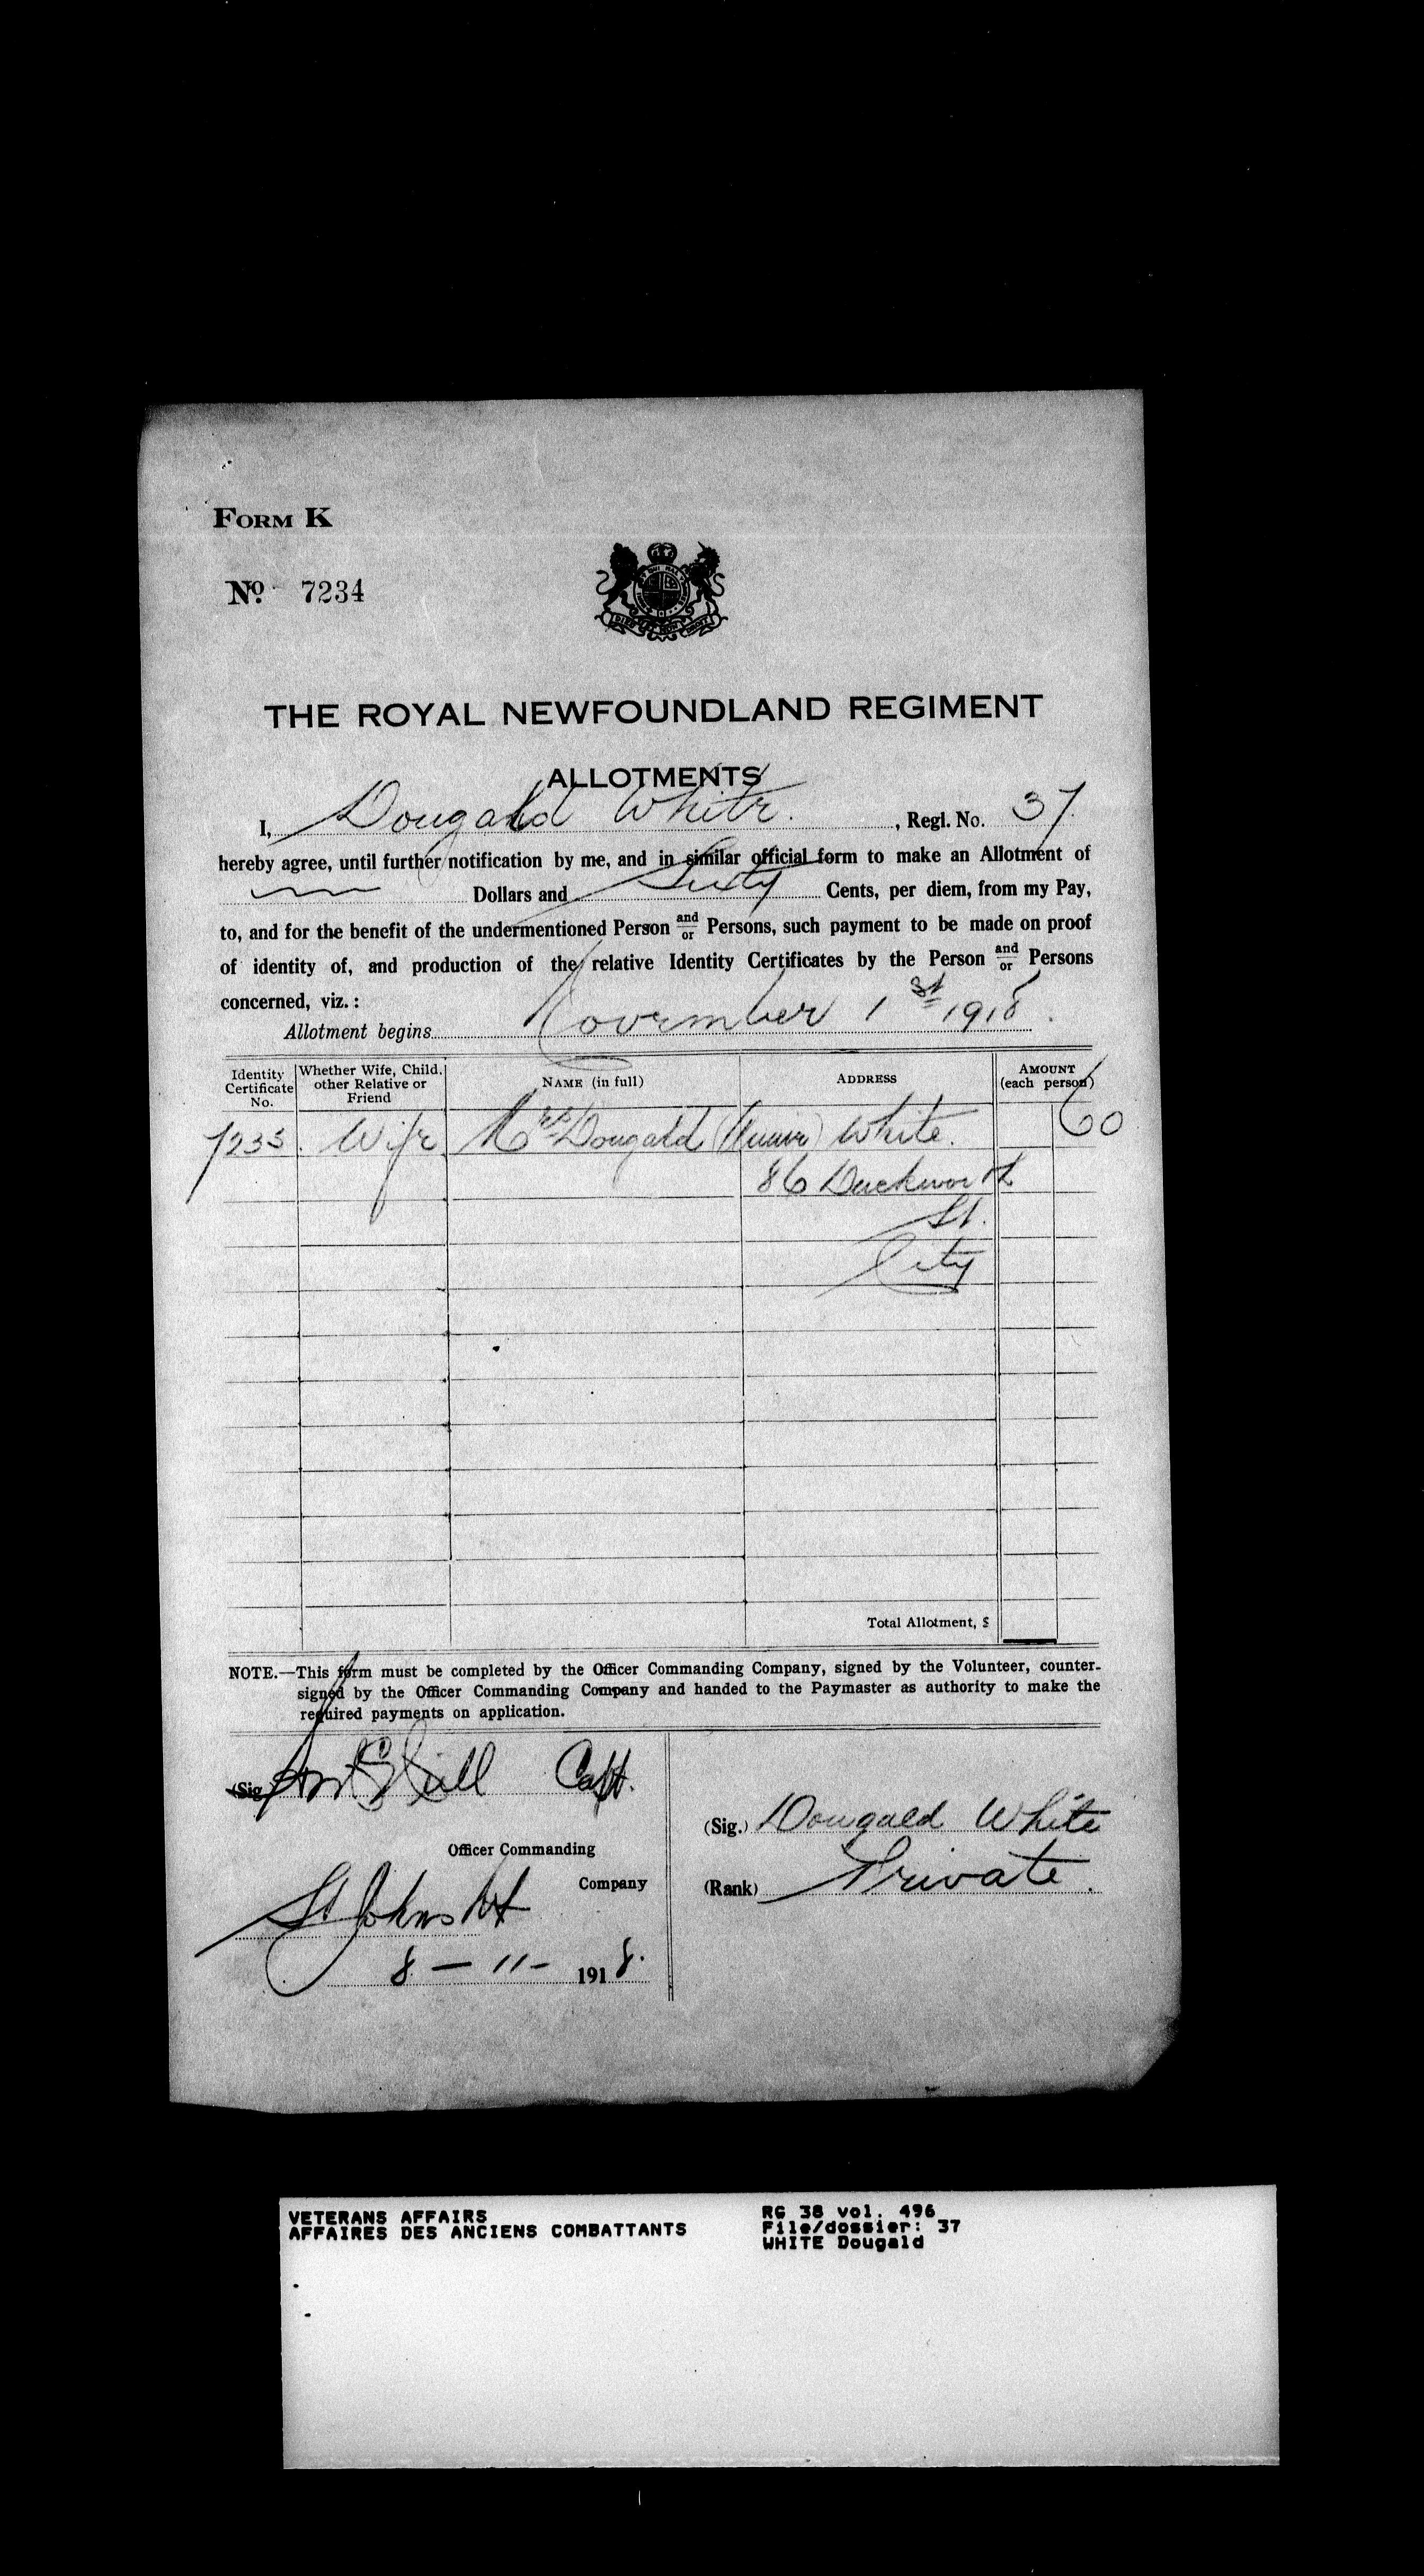 FORM K
No. 7234
THE ROYAL NEWFOUNDLAND REGIMENT
ALLOTMENTS
I, Dougald White. , Regl. No. 37
hereby agree, until further notification by me, and in similar official form to make an Allotment of
Dollars and Sixty Cents, per diem, from my Pay,
to, and for the benefit of the undermentioned Person and/or Persons, such payment to be made on proof
of identity of, and production of the relative Identity Certificates by the Person and/or Persons
concerned, viz.:
Allotment begins November 1st 1918.
Identity Certificate No. Whether Wife, Child, other Relative or Friend NAME (in full) ADDRESS AMOUNT (each person)
7233. Wife Mrs Dougald White. 60
86 Duckworth
St.
City
Total Allotment, $
NOTE.—This form must be completed by the Officer Commanding Company, signed by the Volunteer, counter-
signed by the Officer Commanding Company and handed to the Paymaster as authority to make the
required payments on application.
(Sig.) Capt.
Officer Commanding
Company
St Johns Nf
8 - 11 - 1918.
(Sig.) Dougald White
(Rank) Private.
VETERANS AFFAIRS
AFFAIRES DES ANCIENS COMBATTANTS
RG 38 vol. 496
File/dossier: 37
WHITE Dougald